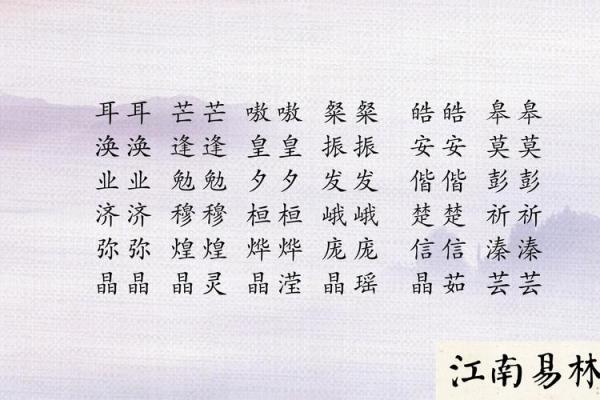 耳耳 芒芒 嗷嗷 粲粲 皓皓 皋皋
涣涣 逢逢 皇皇 振振 安安 莫莫
业业 勉勉 夕夕 发发 偕偕 彭彭
济济 穆穆 桓桓 峨峨 楚楚 祈祈
弥弥 煌煌 烨烨 庞庞 信信 溱溱
晶晶 晶灵 晶滢 晶瑶 晶茹 芸芸
江南易林